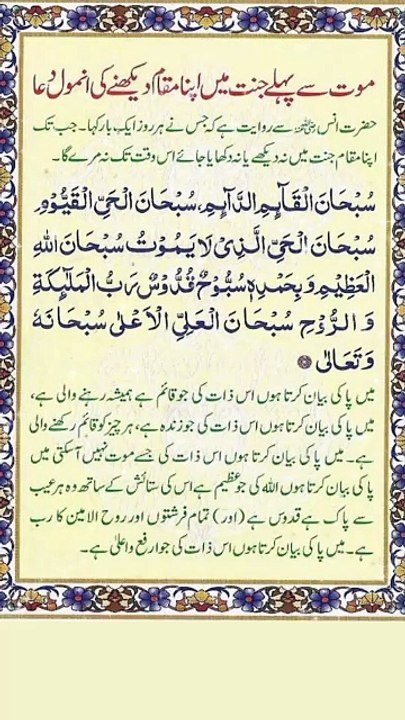 موت سے پہلے جنت میں اپنا مقام دیکھنے کی انمول دعا
حضرت انس رضی اللہ عنہ سے روایت ہے کہ جس نے ہر روز ایک بار کہا۔ جب تک
اپنا مقام جنت میں نہ دیکھے یا نہ دکھایا جائے اس وقت تک نہ مرے گا۔
سُبْحَانَ الْقَآئِمِ الدَّآئِمِ، سُبْحَانَ الْحَيِّ الْقَيُّوْمِ
سُبْحَانَ الْحَيِّ الَّذِیْ لَا یَمُوْتُ سُبْحَانَ اللهِ
الْعَظِیْمِ وَ بِحَمْدِهٖ سُبُّوْحٌ قُدُّوْسٌ رَبُّ الْمَلٰٓئِکَةِ
وَ الرُّوْحِ سُبْحَانَ الْعَلِيِّ الْاَعْلٰی سُبْحَانَهٗ
وَ تَعَالٰی
میں پاکی بیان کرتا ہوں اس ذات کی جو قائم ہے ہمیشہ رہنے والی ہے،
میں پاکی بیان کرتا ہوں اس ذات کی جو زندہ ہے، ہر چیز کو قائم رکھنے والی
ہے۔ میں پاکی بیان کرتا ہوں اس ذات کی جسے موت نہیں آسکتی میں
پاکی بیان کرتا ہوں اللہ کی جو عظیم ہے اس کی ستائش کے ساتھ وہ ہر عیب
سے پاک ہے قدوس ہے (اور) تمام فرشتوں اور روح الامین کا رب
ہے۔ میں پاکی بیان کرتا ہوں اس ذات کی جو ارفع واعلیٰ ہے۔